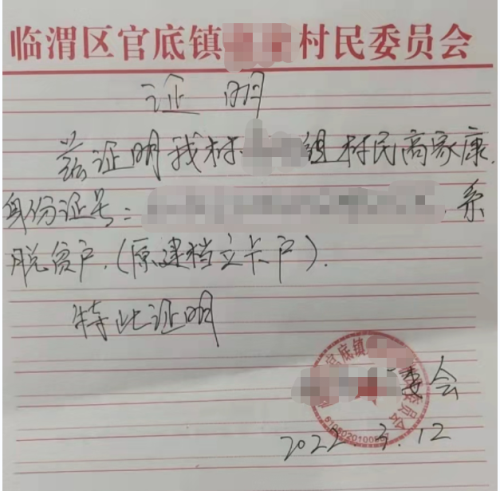 临渭区官底镇 村民委员会
证 明
兹证明我村 组村民高家康,
身份证号: . 系
脱贫户,(原建档立卡户).
特此证明
官底镇
委会
2022 3.12